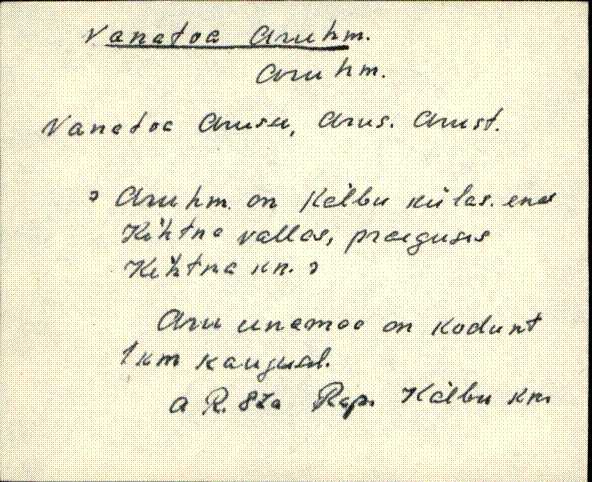 Vanatoa Aruhm.
Aruhm.
Vanatoa Arusu, Arus. Arust.
Aruhm. on Kälbu külas.
Kehtna vallas, praeguses
Kehtna kn.
Aru unamaa on kodunt
1 km kaugusel.
a R. Rap. Kälbu km